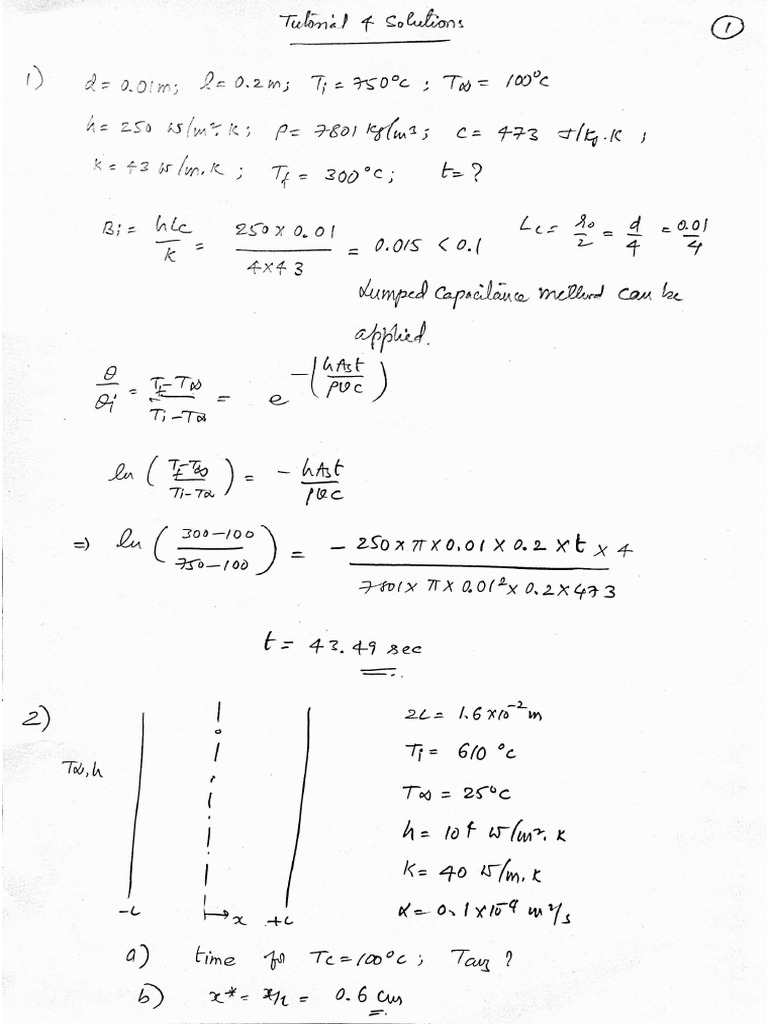 Tutorial 4 Solutions
1
1) d = 0.01m; l = 0.2m; Ti = 750°C ; T∞ = 100°C
h = 250 W/m².K; ρ = 7801 kg/m³; C = 473 J/kg.K ;
K = 43 W/m.K ; Tf = 300°C; t = ?
Bi = hLc/K = 250 x 0.01/4x43 = 0.015 < 0.1 Lc = ro/2 = d/4 = 0.01/4
Lumped Capacitance method can be
applied.
θ/θi = Tf-T∞/Ti-T∞ = e^-(hAst/ρVC)
ln (Tf-T∞/Ti-T∞) = - hAst/ρVC
⇒ ln (300-100/750-100) = - 250 x π x 0.01 x 0.2 x t x 4/7801x π x 0.01² x 0.2 x 473
t = 43.49 sec
2) 2L = 1.6x10⁻² m
Ti = 610 °C
T∞, h
T∞ = 25°C
h = 10⁴ W/m².K
K = 40 W/m.K
-L x +L
α = 0.1x10⁻⁴ m²/s
a) time for Tc = 100°C ; Tavg ?
b) x* = x/L = 0.6 cm